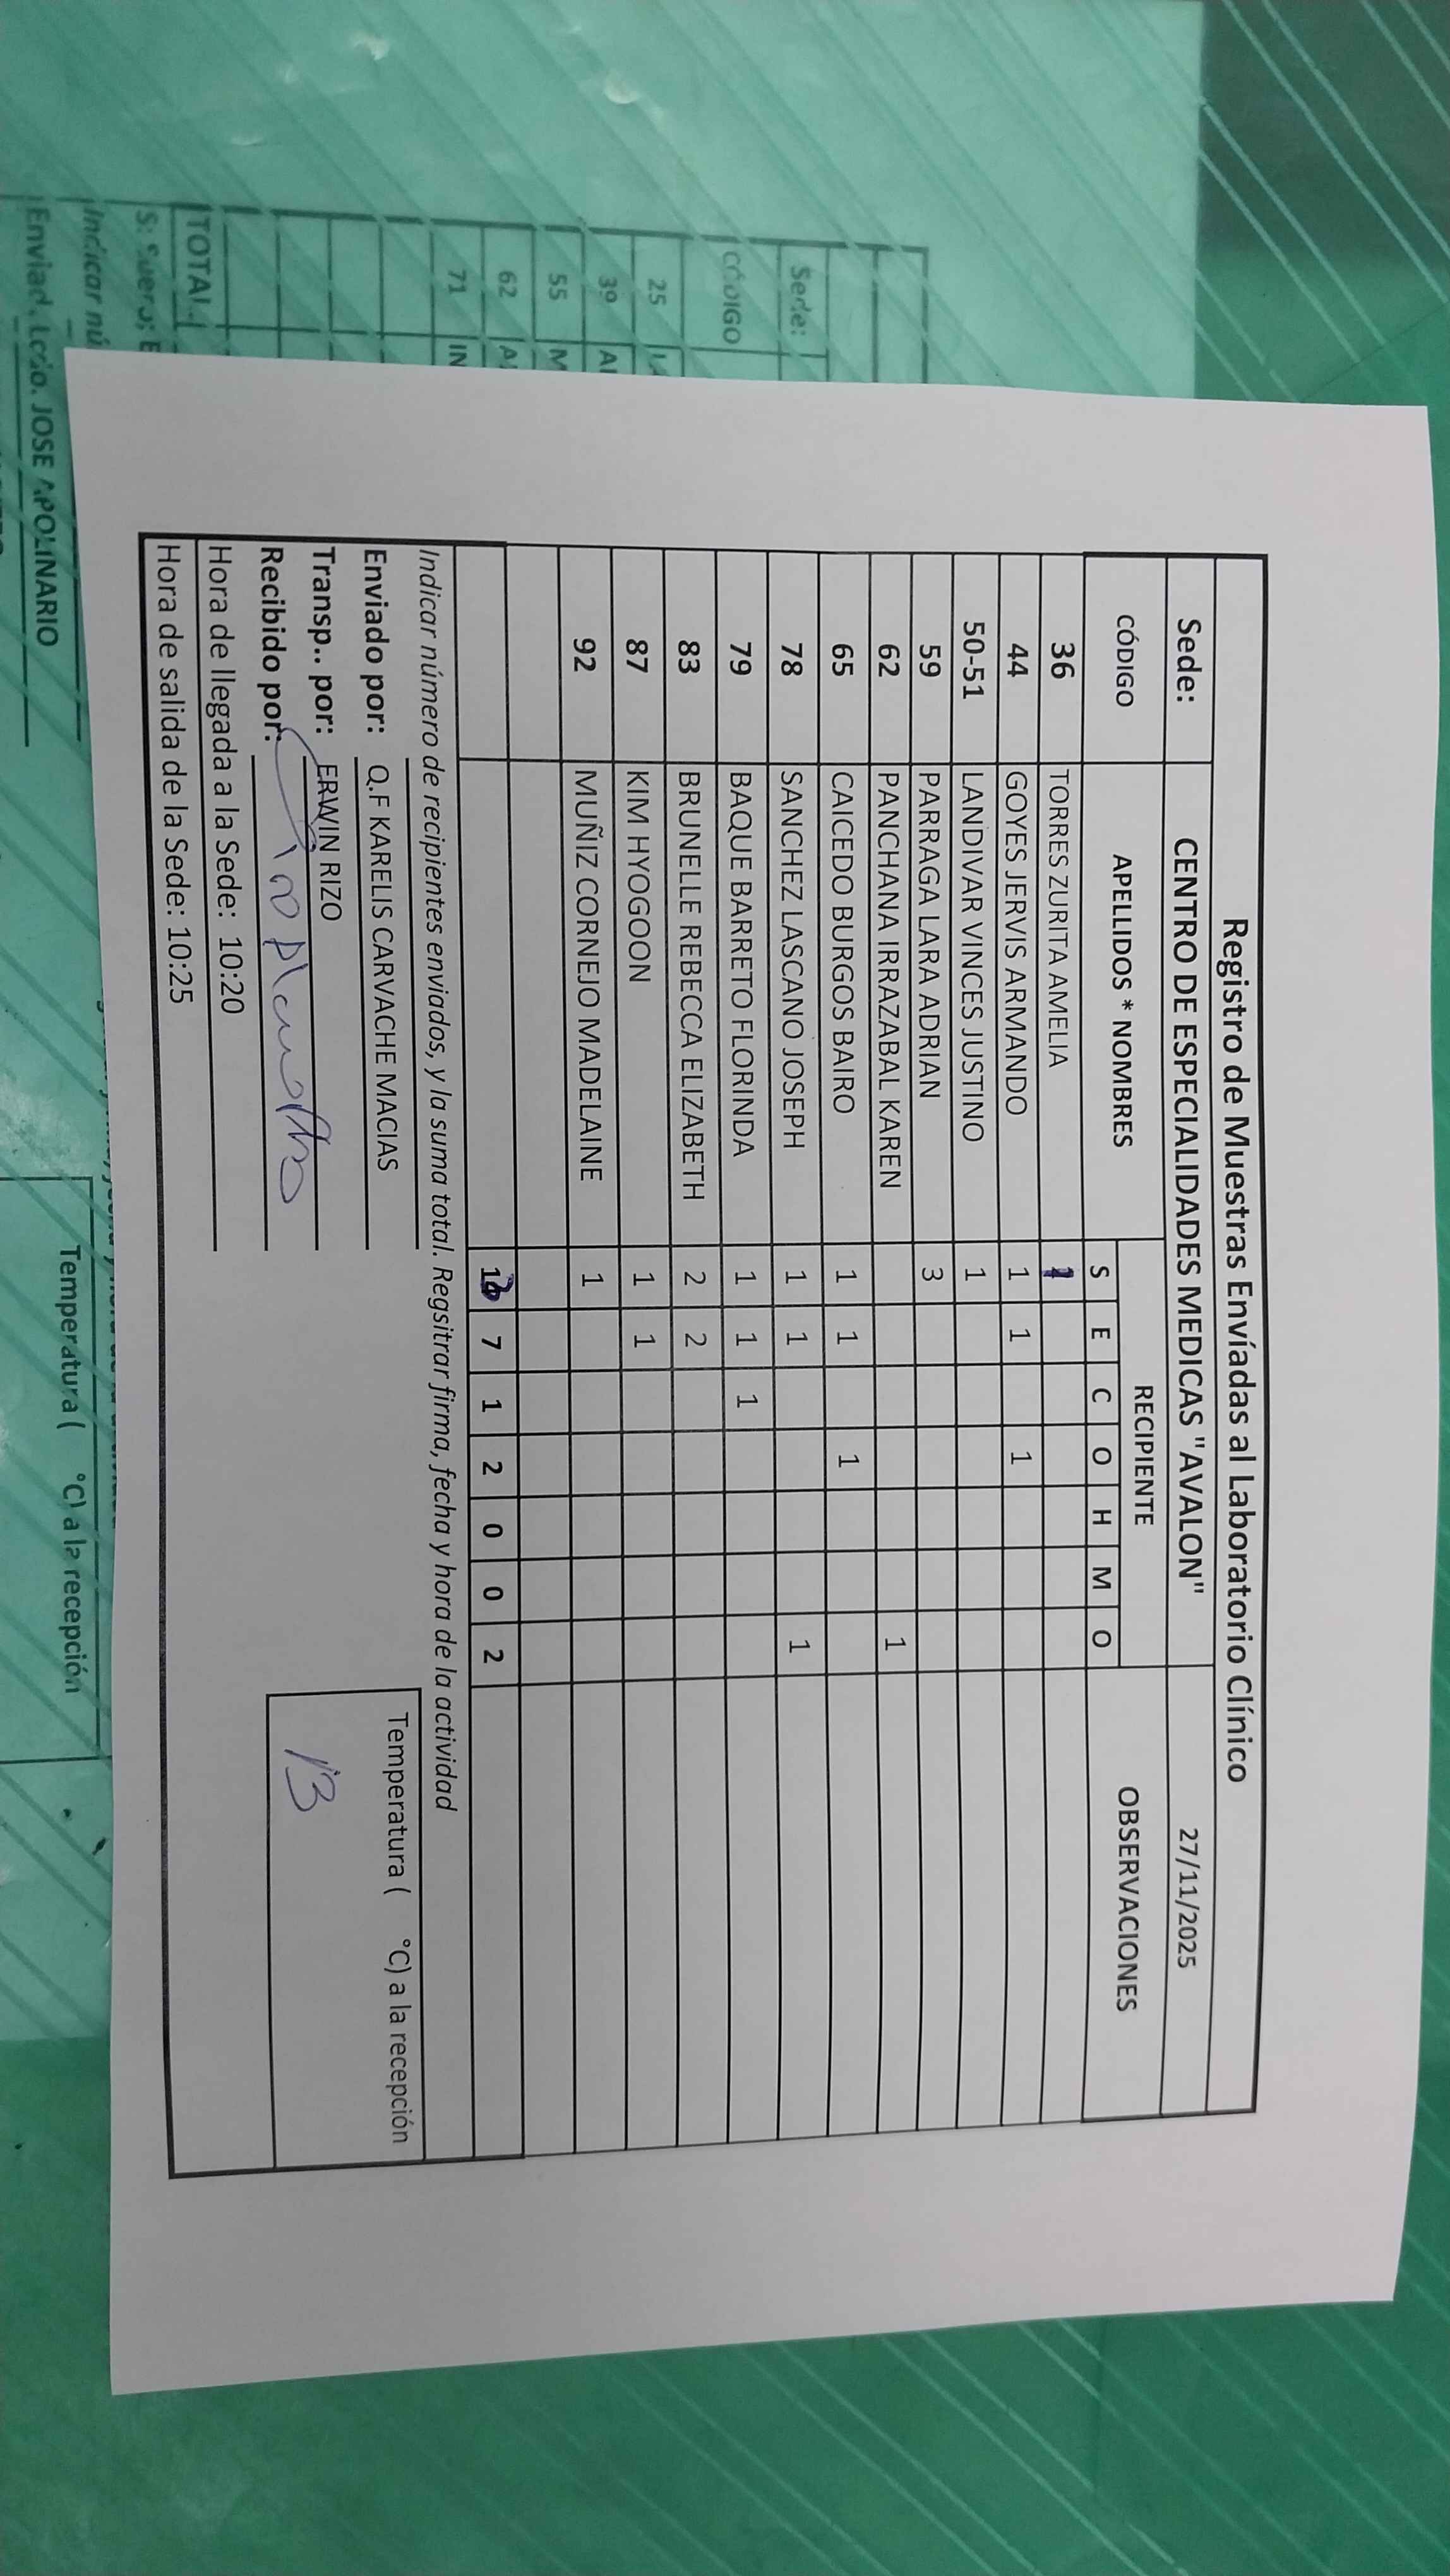 Registro de Muestras Envíadas al Laboratorio Clínico
Sede: CENTRO DE ESPECIALIDADES MEDICAS "AVALON" 27/11/2025
CÓDIGO APELLIDOS * NOMBRES RECIPIENTE OBSERVACIONES
S E C O H M O
36 TORRES ZURITA AMELIA
44 GOYES JERVIS ARMANDO 1 1 1
50-51 LANDIVAR VINCES JUSTINO 1
59 PARRAGA LARA ADRIAN 3
62 PANCHANA IRRAZABAL KAREN 1
65 CAICEDO BURGOS BAIRO 1 1 1
78 SANCHEZ LASCANO JOSEPH 1 1 1
79 BAQUE BARRETO FLORINDA 1 1 1
83 BRUNELLE REBECCA ELIZABETH 2 2
87 KIM HYOGOON 1 1
92 MUÑIZ CORNEJO MADELAINE 1
7 1 2 0 0 2
Indicar número de recipientes enviados, y la suma total. Regsitrar firma, fecha y hora de la actividad
Enviado por: Q.F KARELIS CARVACHE MACIAS
Temperatura ( °C) a la recepción
Transp.. por: ERWIN RIZO
13
Recibido por:
Hora de llegada a la Sede: 10:20
Hora de salida de la Sede: 10:25
Sede:
CÓDIGO
25
39
55 M
62
71 IN
TOTAL
Indicar nú
JOSE APOLINARIO
Temperatura ( °C) a la recepción